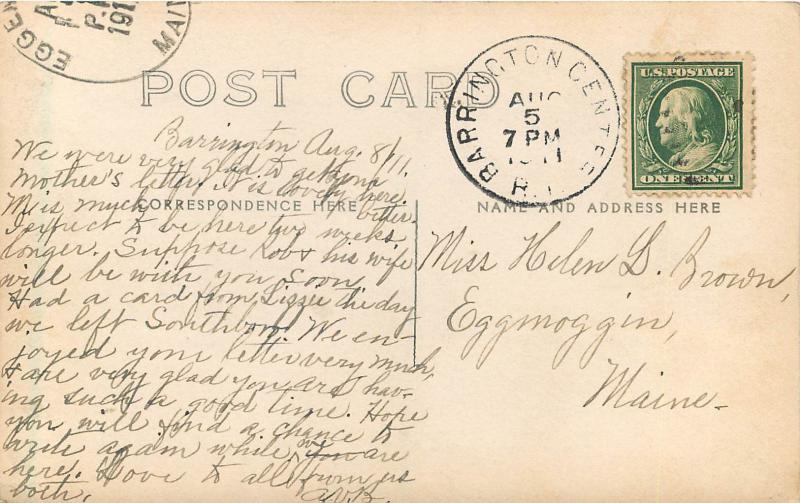 EGGEM
MAIN
A
P.M
191
POST CARD
BARRINGTON CENTER
AUG
5
7 PM
1911
R.I.
U.S. POSTAGE
ONE CENT
CORRESPONDENCE HERE
NAME AND ADDRESS HERE
Barrington Aug. 8/11.
We were very glad to get
Mother's letter. It is lovely here.
M. is much better
I expect to be here two weeks
longer. Suppose Rob & his wife
will be with you soon.
Had a card from Lizzie the day
we left Southboro. We en-
joyed your letter very much,
& are very glad you are hav-
ing such a good time. Hope
you will find a chance to
write again while we are
here. Love to all from us
both,
Miss Helen L. Brown,
Eggmoggin,
Maine-